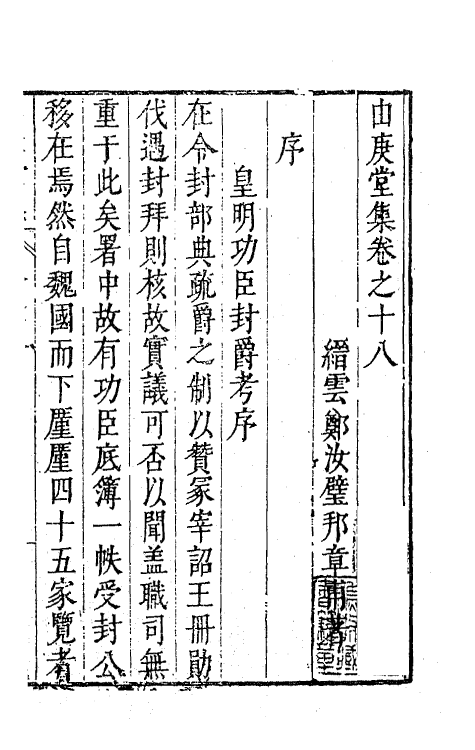 由庚堂集卷之十八
縉雲鄭汝璧邦章甫著
序
皇明功臣封爵考序
在令封部典䟽爵之制以贊冢宰詔王冊勛
伐遇封拜則核故實議可否以聞盖職司無
重于此矣署中故有功臣底簿一帙受封公
移在焉然自魏國而下廑廑四十五家覽者